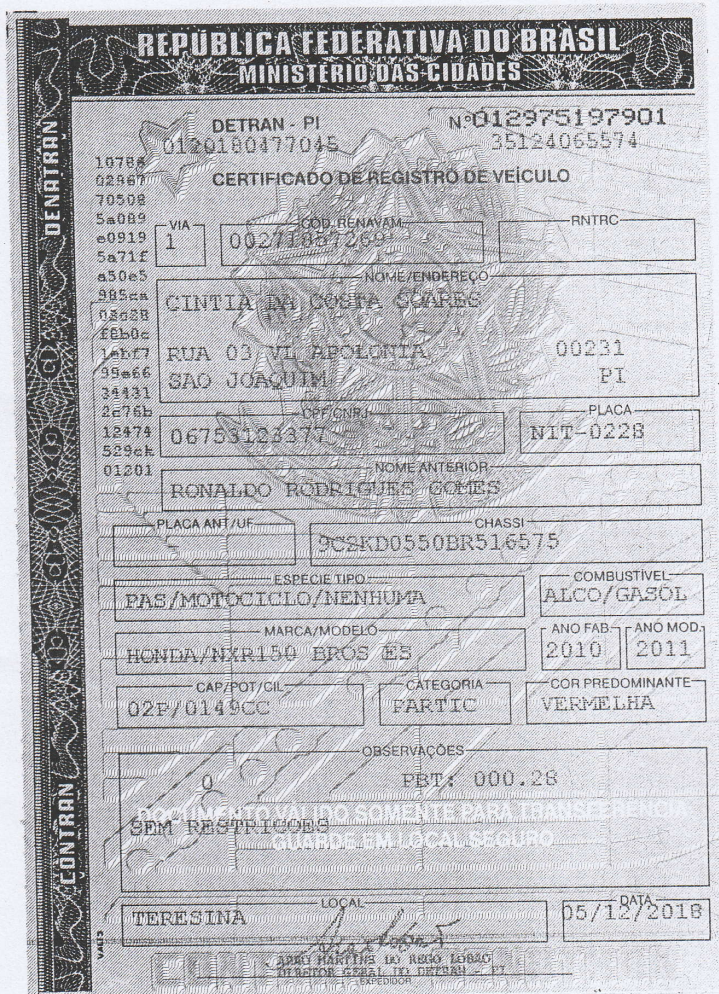 REPÚBLICA FEDERATIVA DO BRASIL
MINISTÉRIO DAS CIDADES
DENATRAN
CONTRAN
DETRAN - PI
Nº 012975197901
0120180477045
35124065574
CERTIFICADO DE REGISTRO DE VEÍCULO
02967
70508
5a089
e0919
5a71f
a50e5
985ca
f8b0c
99e66
34431
2e76b
12474
01201
VIA
1
CÓD. RENAVAM
00271857269
RNTRC
NOME/ENDEREÇO
CINTIA DA COSTA SOARES
RUA 03 VL APOLONIA 00231
SAO JOAQUIM PI
CPF/CNPJ
06753123377
PLACA
NIT-0228
NOME ANTERIOR
RONALDO RODRIGUES GOMES
PLACA ANT/UF
CHASSI
9C2KD0550BR516575
ESPÉCIE TIPO
PAS/MOTOCICLO/NENHUMA
COMBUSTÍVEL
ALCO/GASOL
MARCA/MODELO
HONDA/NXR150 BROS ES
ANO FAB.
2010
ANO MOD.
2011
CAP/POT/CIL
02P/0149CC
CATEGORIA
PARTIC
COR PREDOMINANTE
VERMELHA
OBSERVAÇÕES
0 PBT: 000.28
DOCUMENTO VÁLIDO SOMENTE PARA TRANSFERÊNCIA
SEM RESTRICOES
GUARDE EM LOCAL SEGURO
LOCAL
TERESINA
DATA
05/12/2018
ARAO MARTINS DO REGO LOBAO
DIRETOR GERAL DO DETRAN - PI
EXPEDIDOR